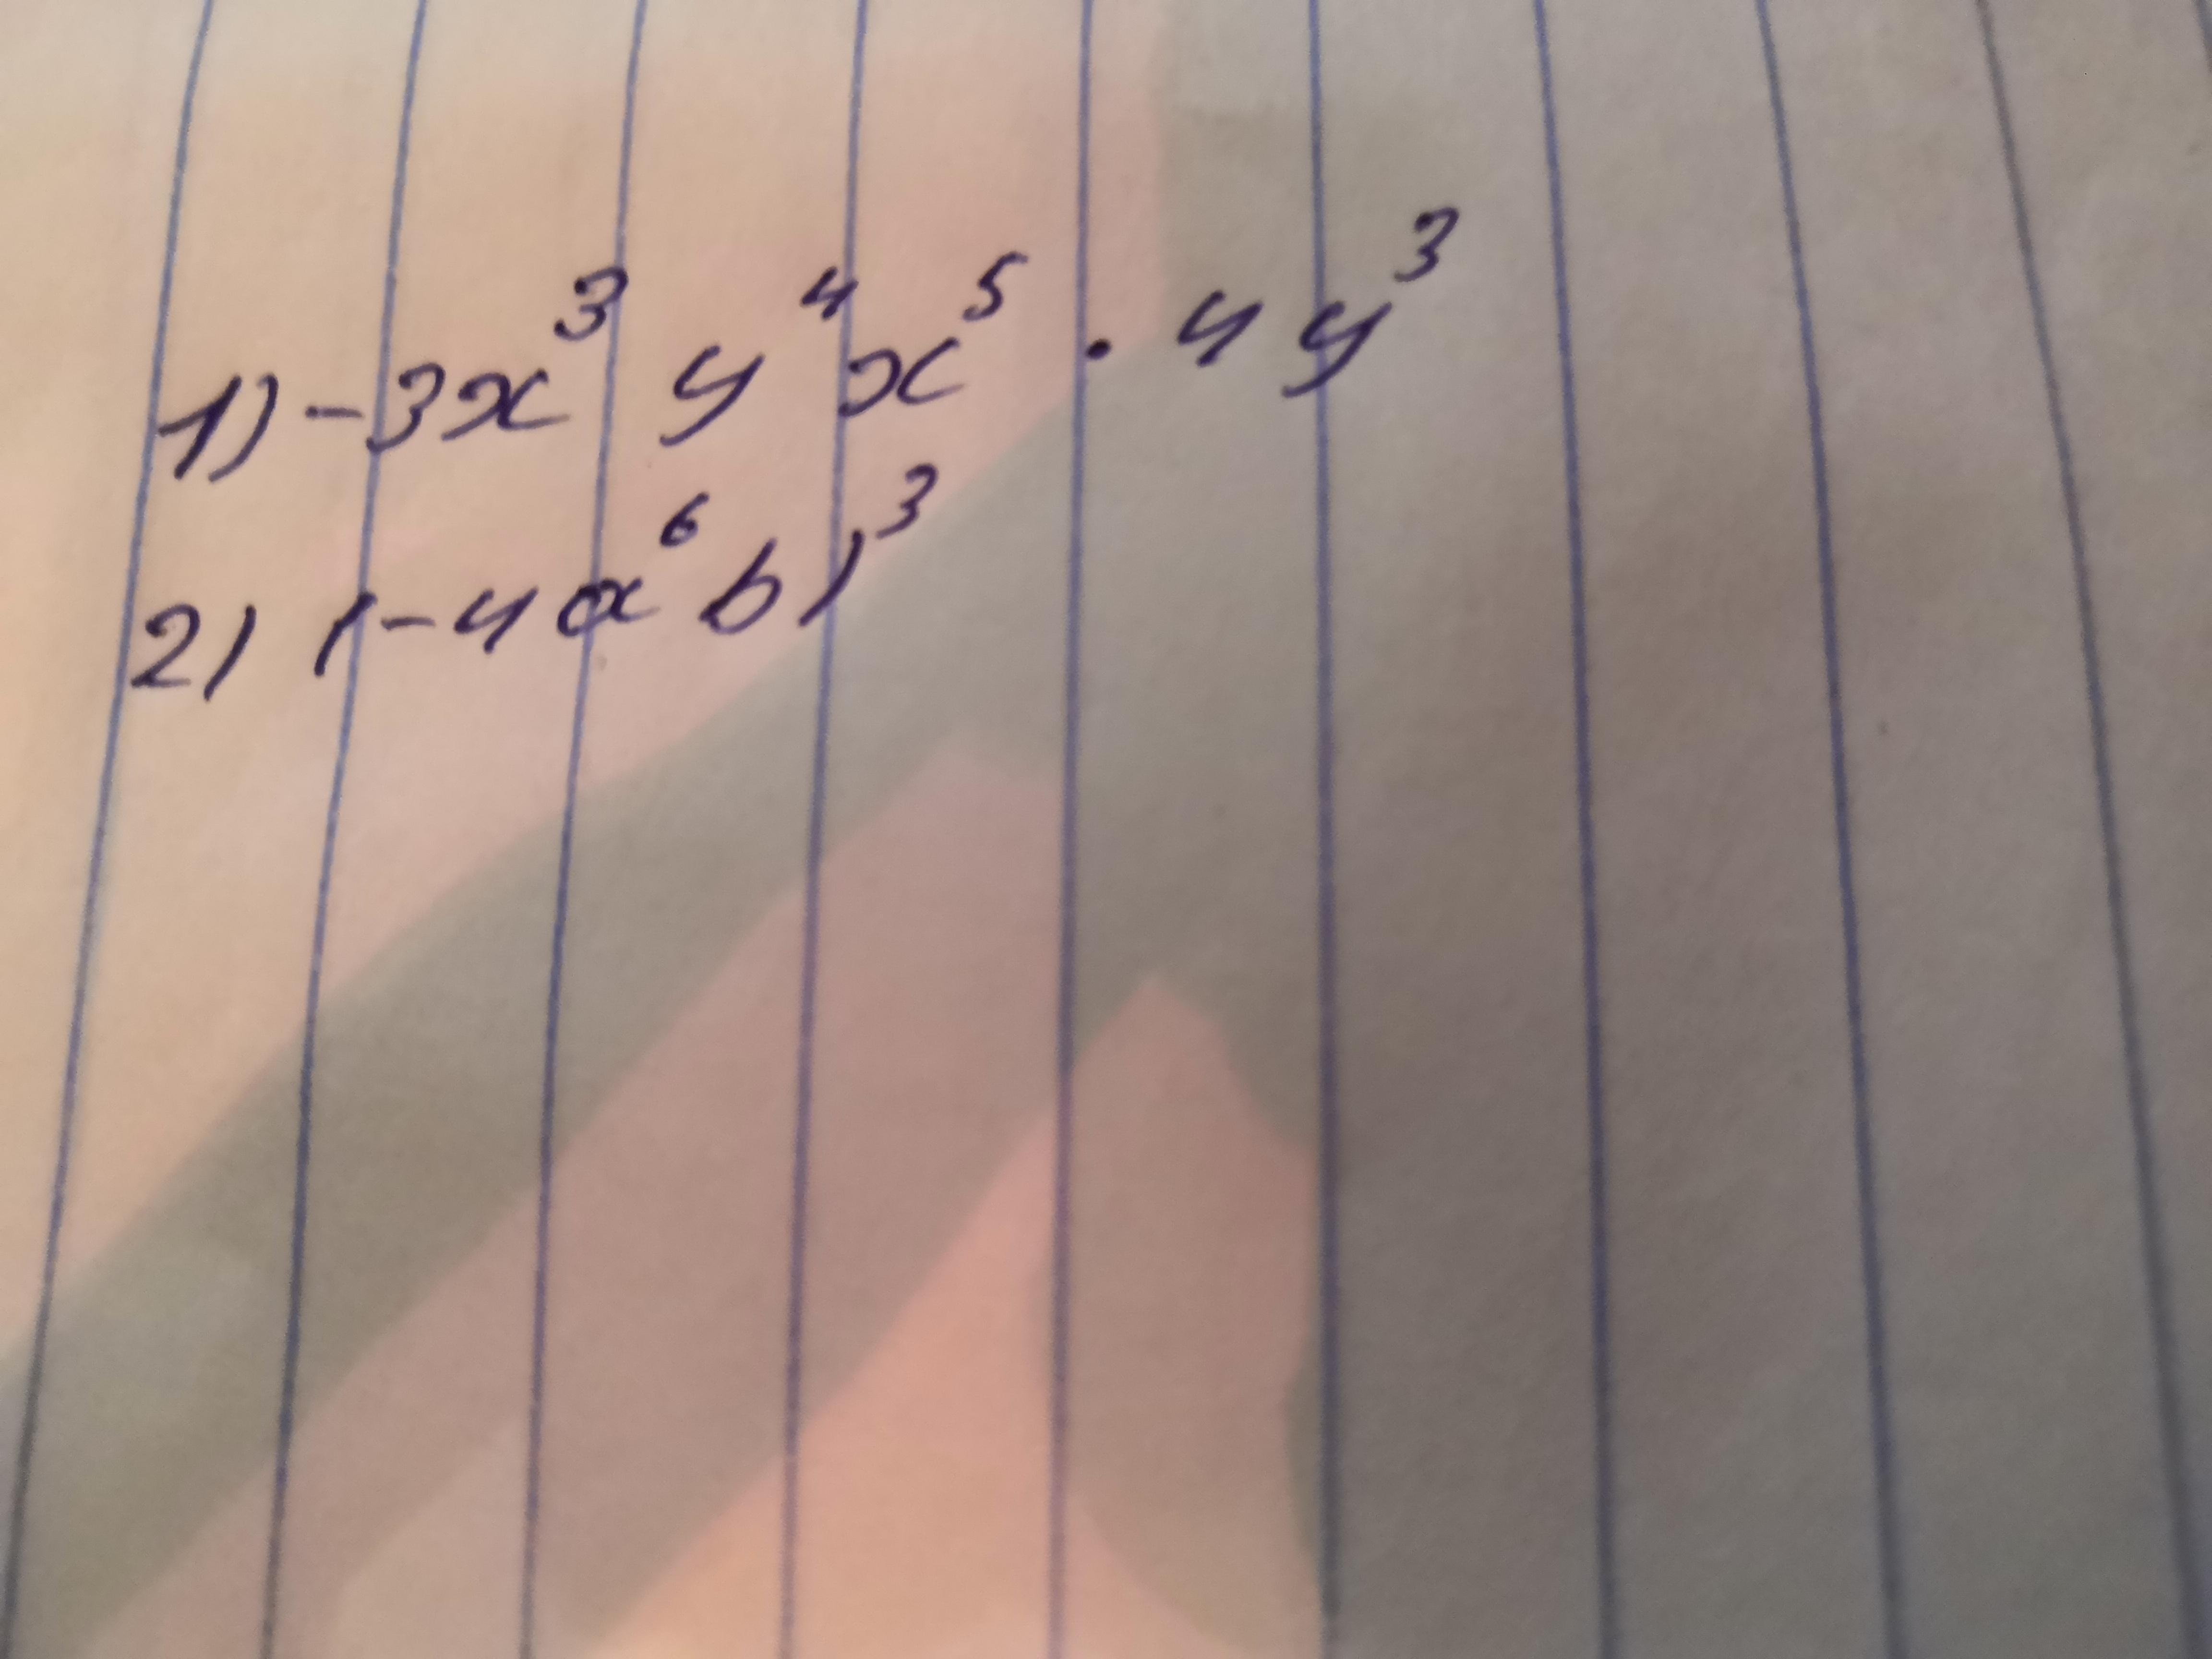 1) -3x³ y⁴ x⁵ · 4y³
2) (-4a⁶b)³